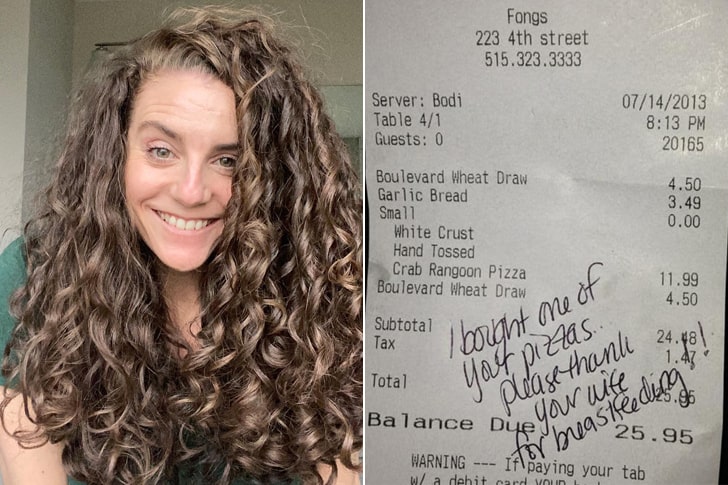 Fongs
223 4th street
515.323.3333
Server: Bodi 07/14/2013
Table 4/1 8:13 PM
Guests: 0 20165
Boulevard Wheat Draw 4.50
Garlic Bread 3.49
Small 0.00
White Crust
Hand Tossed
Crab Rangoon Pizza 11.99
Boulevard Wheat Draw 4.50
Subtotal 24.48
Tax 1.47
Total 25.95
Balance Due 25.95
I bought one of
your pizzas..
please thank
your wife
for breastfeeding!
WARNING --- If paying your tab
w/ a debit card your